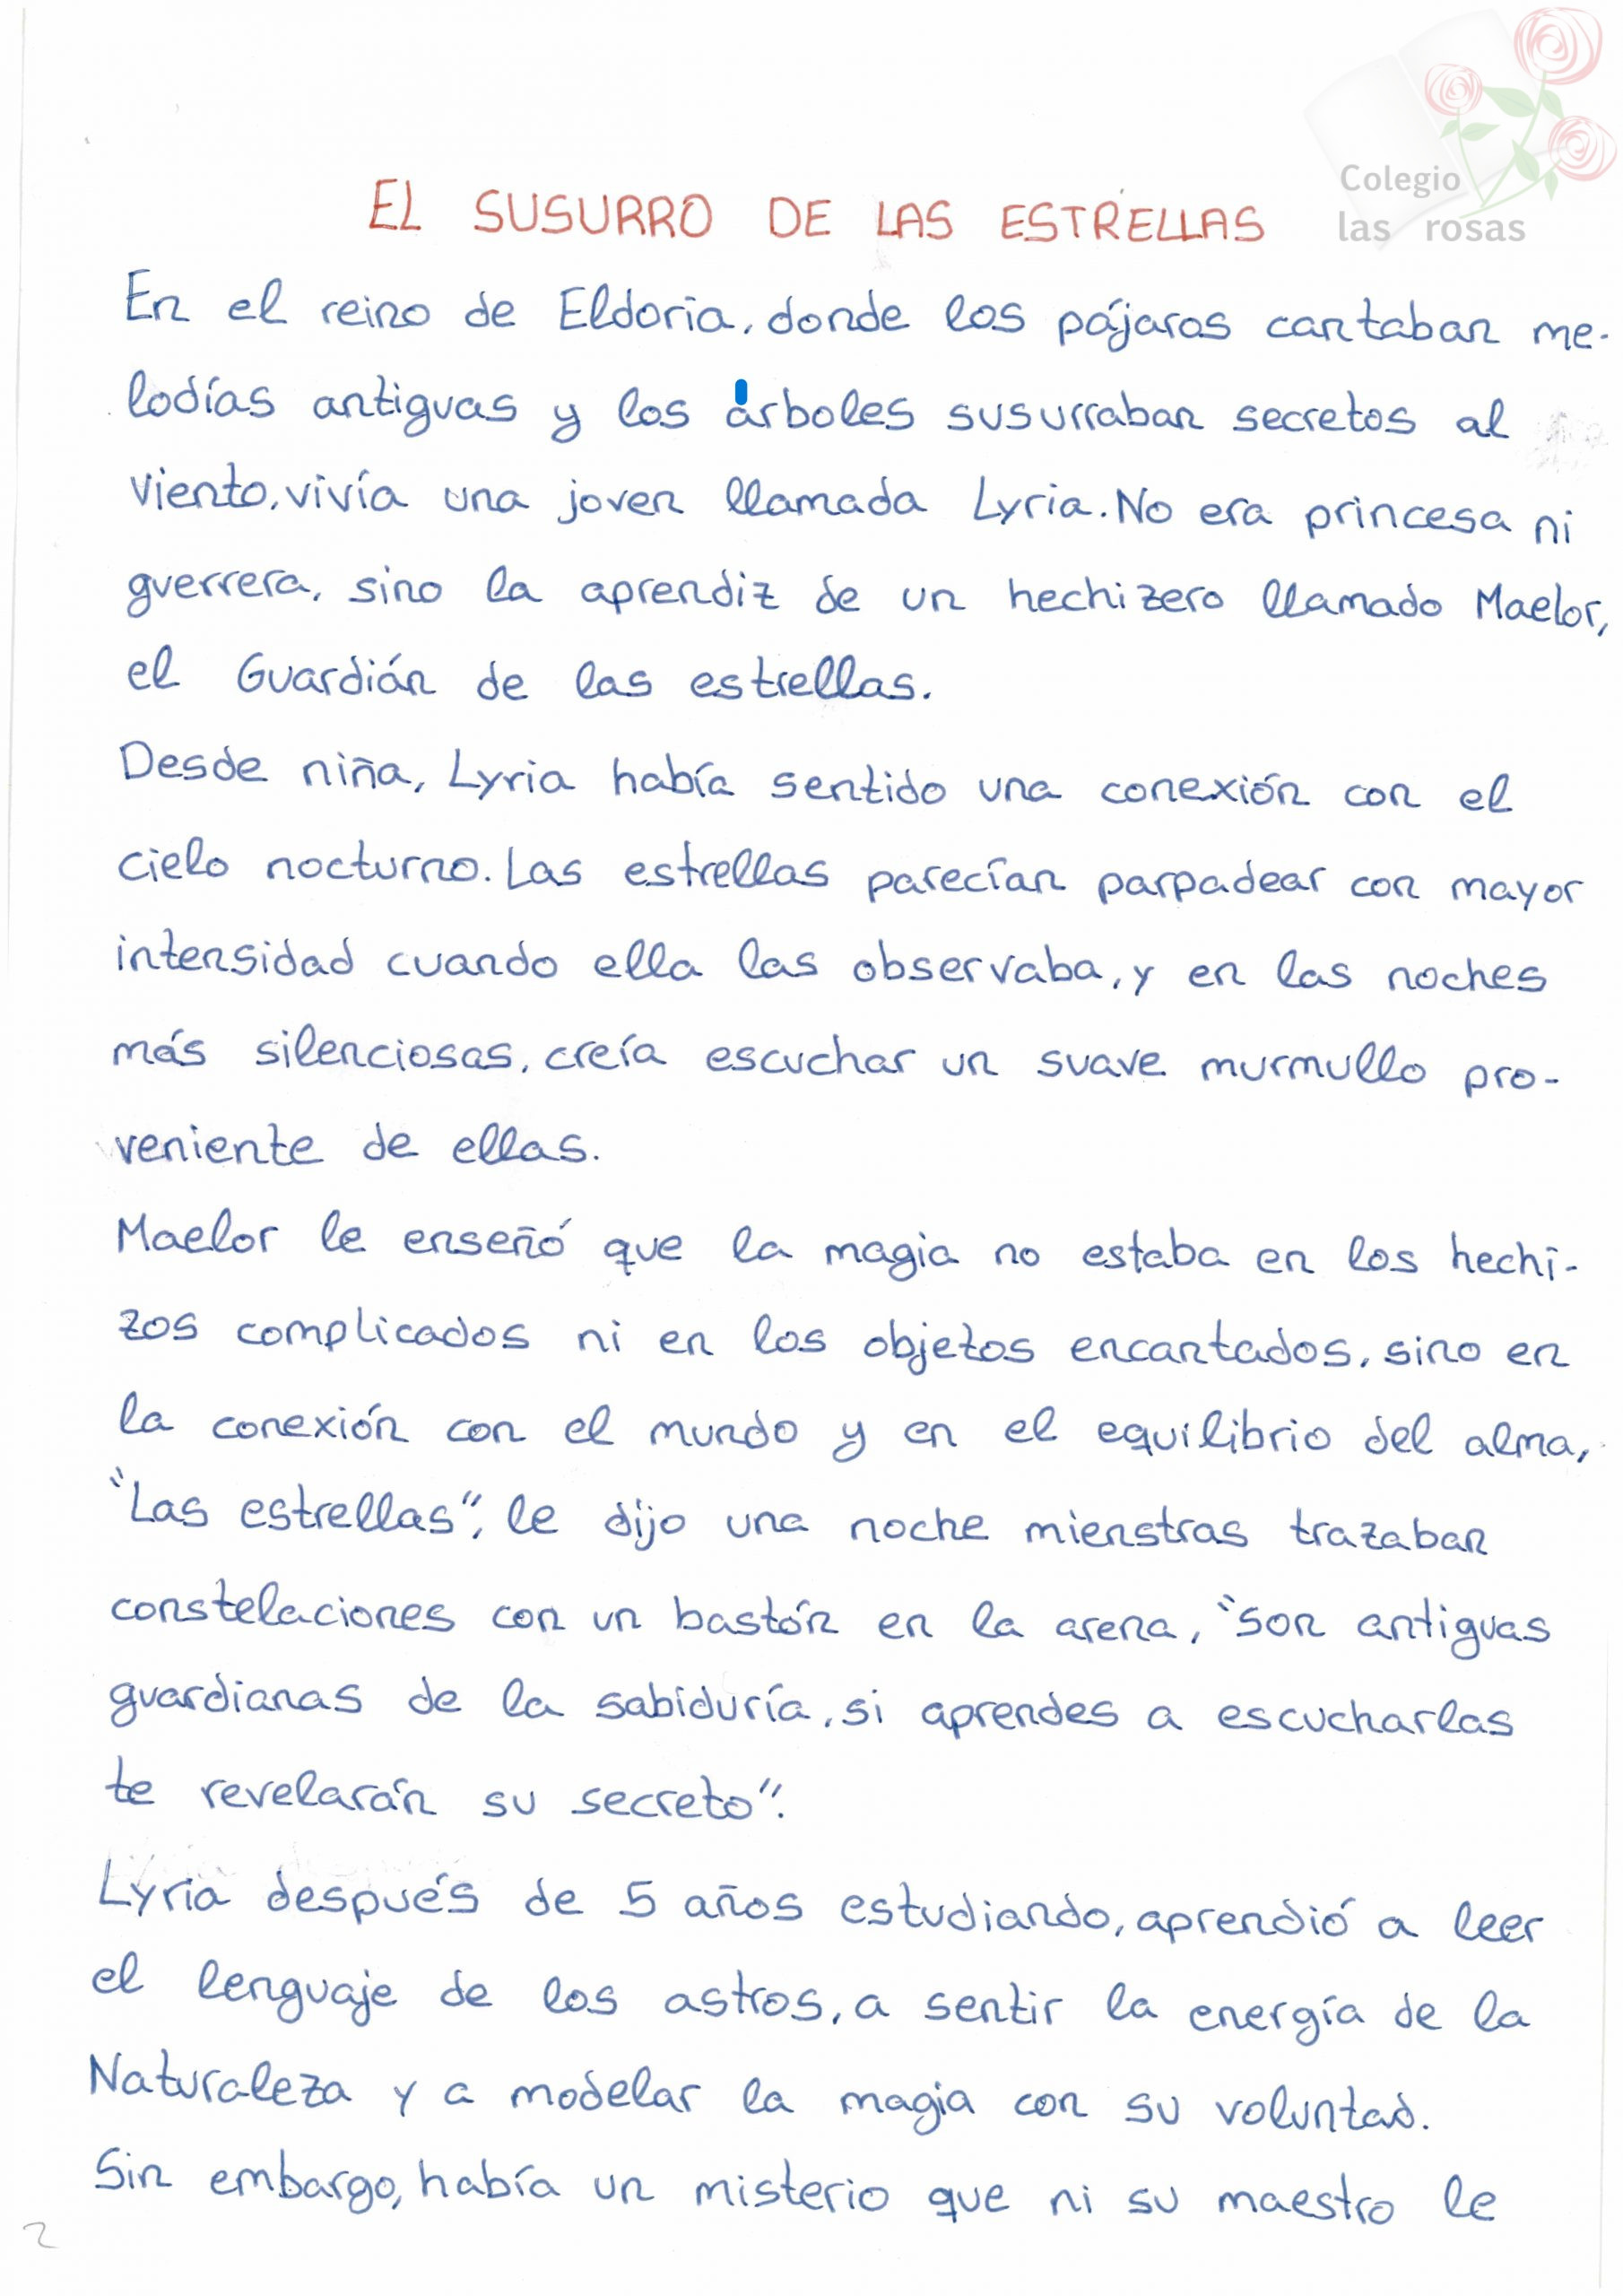 Colegio
las rosas
EL SUSURRO DE LAS ESTRELLAS
En el reino de Eldoria, donde los pájaros cantaban me-
lodías antiguas y los árboles susurraban secretos al
viento, vivía una joven llamada Lyria. No era princesa ni
guerrera, sino la aprendiz de un hechizero llamado Maelor,
el Guardián de las estrellas.
Desde niña, Lyria había sentido una conexión con el
cielo nocturno. Las estrellas parecían parpadear con mayor
intensidad cuando ella las observaba, y en las noches
más silenciosas, creía escuchar un suave murmullo pro-
veniente de ellas.
Maelor le enseñó que la magia no estaba en los hechi-
zos complicados ni en los objetos encantados, sino en
la conexión con el mundo y en el equilibrio del alma,
"Las estrellas", le dijo una noche mienstras trazaban
constelaciones con un bastón en la arena, "son antiguas
guardianas de la sabiduría, si aprendes a escucharlas
te revelarán su secreto".
Lyria después de 5 años estudiando, aprendió a leer
el lenguaje de los astros, a sentir la energía de la
Naturaleza y a modelar la magia con su voluntad.
Sin embargo, había un misterio que ni su maestro le
2